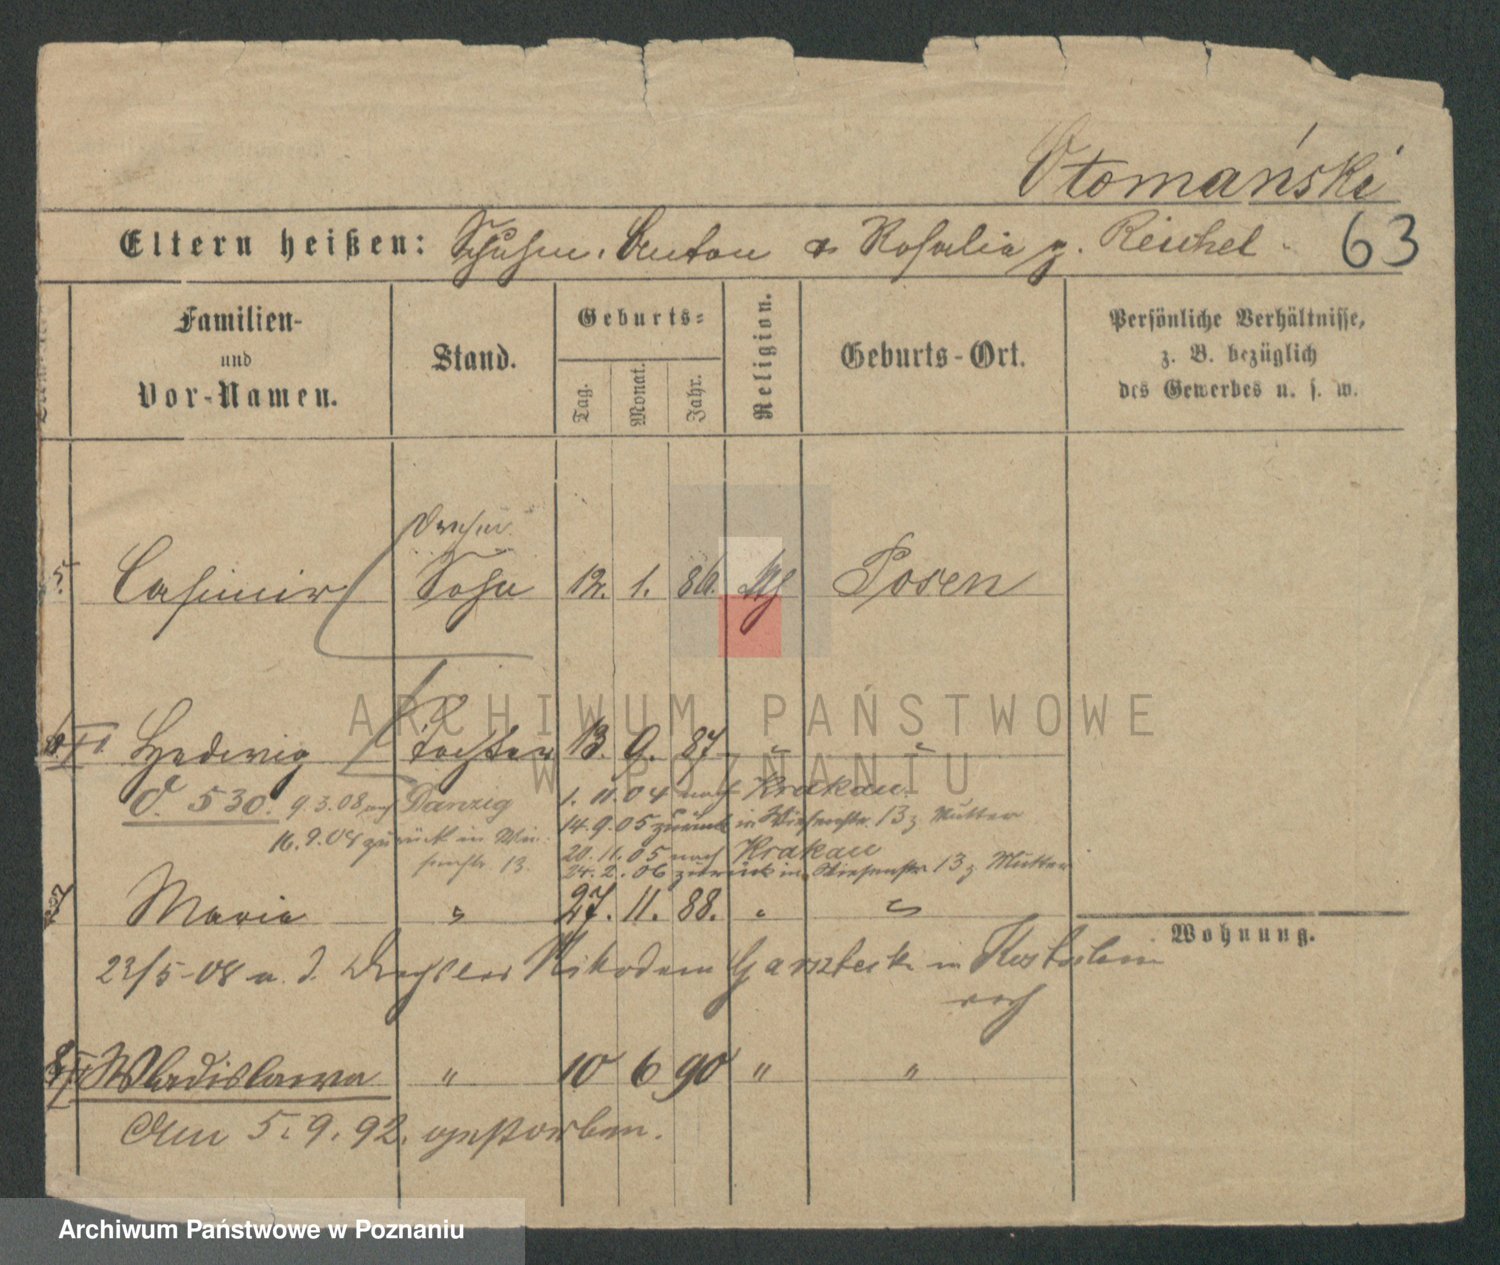 Otomański
Eltern heißen: Anton Rosalia g. Reichel 63
Familien-
und
Vor-Namen.
Stand.
Geburts-
Tag.
Monat.
Jahr.
Religion.
Geburts-Ort.
Persönliche Verhältnisse,
z. B. bezüglich
des Gewerbes u. s. w.
5. Casimir Sohn 12. 1. 86. Posen
Hedwig Tochter 13. 9. 87 " "
O. 530. 9.3.08 Danzig 1. 11. 04 nach Krakau
14. 9. 05 zurück in Wiesenstr. 13 z. Mutter
16. 9. 08 zurück in Wie-
senstr. 13.
20. 11. 05 nach Krakau
24. 2. 06 zurück in Wiesenstr 13 z. Mutter
Maria " 27. 11. 88. " "
Wohnung.
23/5-08 Nikodem in
8 Wladislawa " 10 6 90 " "
Am 5. 9. 92. gestorben.
ARCHIWUM PAŃSTWOWE
W POZNANIU
Archiwum Państwowe w Poznaniu